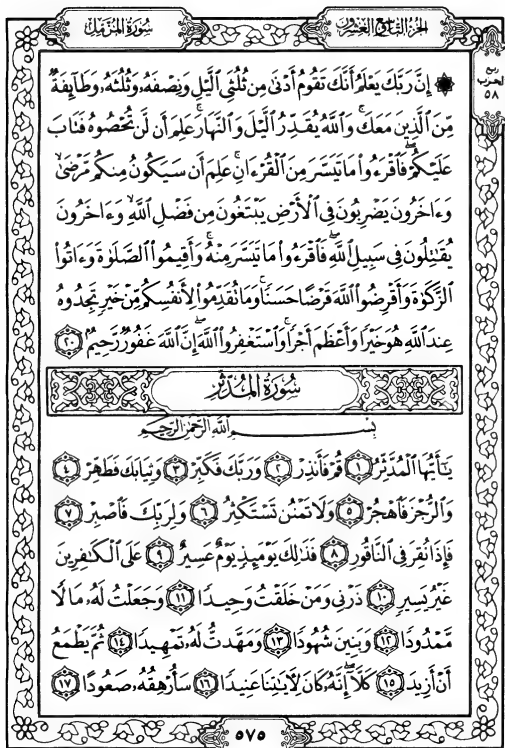 الجزء التاسع والعشرون
سورة المزمل
ربع
الحزب
٥٨
۞ إِنَّ رَبَّكَ يَعْلَمُ أَنَّكَ تَقُومُ أَدْنَىٰ مِن ثُلُثَيِ ٱلَّيْلِ وَنِصْفَهُۥ وَثُلُثَهُۥ وَطَآئِفَةٌ
مِّنَ ٱلَّذِينَ مَعَكَۚ وَٱللَّهُ يُقَدِّرُ ٱلَّيْلَ وَٱلنَّهَارَۚ عَلِمَ أَن لَّن تُحْصُوهُ فَتَابَ
عَلَيْكُمْۖ فَٱقْرَءُوا۟ مَا تَيَسَّرَ مِنَ ٱلْقُرْءَانِۚ عَلِمَ أَن سَيَكُونُ مِنكُم مَّرْضَىٰۙ
وَءَاخَرُونَ يَضْرِبُونَ فِى ٱلْأَرْضِ يَبْتَغُونَ مِن فَضْلِ ٱللَّهِۙ وَءَاخَرُونَ
يُقَٰتِلُونَ فِى سَبِيلِ ٱللَّهِۖ فَٱقْرَءُوا۟ مَا تَيَسَّرَ مِنْهُۚ وَأَقِيمُوا۟ ٱلصَّلَوٰةَ وَءَاتُوا۟
ٱلزَّكَوٰةَ وَأَقْرِضُوا۟ ٱللَّهَ قَرْضًا حَسَنًاۚ وَمَا تُقَدِّمُوا۟ لِأَنفُسِكُم مِّنْ خَيْرٍ تَجِدُوهُ
عِندَ ٱللَّهِ هُوَ خَيْرًا وَأَعْظَمَ أَجْرًاۚ وَٱسْتَغْفِرُوا۟ ٱللَّهَۖ إِنَّ ٱللَّهَ غَفُورٌ رَّحِيمٌۢ ٢٠
سورة المدثر
بِسْمِ ٱللَّهِ ٱلرَّحْمَٰنِ ٱلرَّحِيمِ
يَٰٓأَيُّهَا ٱلْمُدَّثِّرُ ١ قُمْ فَأَنذِرْ ٢ وَرَبَّكَ فَكَبِّرْ ٣ وَثِيَابَكَ فَطَهِّرْ ٤
وَٱلرُّجْزَ فَٱهْجُرْ ٥ وَلَا تَمْنُن تَسْتَكْثِرُ ٦ وَلِرَبِّكَ فَٱصْبِرْ ٧
فَإِذَا نُقِرَ فِى ٱلنَّاقُورِ ٨ فَذَٰلِكَ يَوْمَئِذٍ يَوْمٌ عَسِيرٌ ٩ عَلَى ٱلْكَٰفِرِينَ
غَيْرُ يَسِيرٍ ١٠ ذَرْنِى وَمَنْ خَلَقْتُ وَحِيدًا ١١ وَجَعَلْتُ لَهُۥ مَالًا
مَّمْدُودًا ١٢ وَبَنِينَ شُهُودًا ١٣ وَمَهَّدتُّ لَهُۥ تَمْهِيدًا ١٤ ثُمَّ يَطْمَعُ
أَنْ أَزِيدَ ١٥ كَلَّآۖ إِنَّهُۥ كَانَ لِءَايَٰتِنَا عَنِيدًا ١٦ سَأُرْهِقُهُۥ صَعُودًا ١٧
٥٧٥